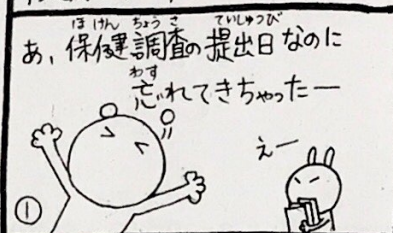 あ、保健調査の提出日なのに
忘れてきちゃったー
えー
①